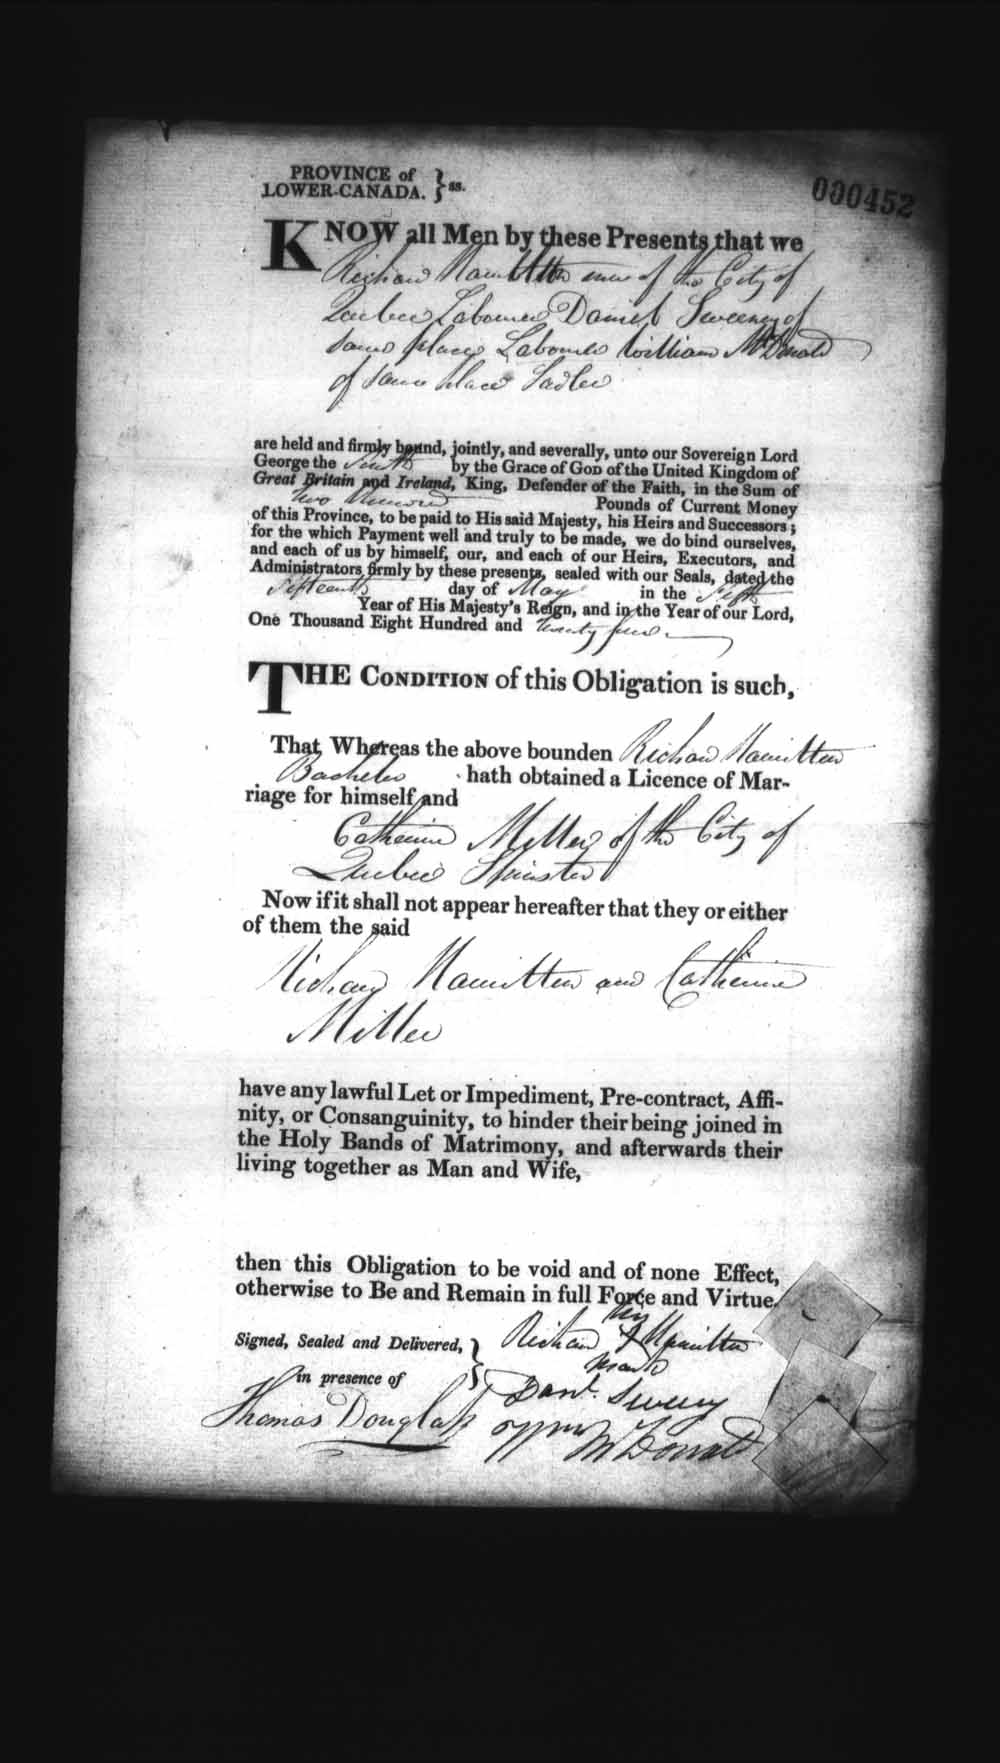 PROVINCE of
LOWER-CANADA. } ss.
000452
KNOW all Men by these Presents that we
Richard Hamilton of the City of
Quebec Labourer Daniel Sweeney of
same place Labourer William McDonald
of same place Sadler
are held and firmly bound, jointly, and severally, unto our Sovereign Lord
George the Fourth by the Grace of GOD of the United Kingdom of
Great Britain and Ireland, King, Defender of the Faith, in the Sum of
Two Hundred Pounds of Current Money
of this Province, to be paid to His said Majesty, his Heirs and Successors;
for the which Payment well and truly to be made, we do bind ourselves,
and each of us by himself, our, and each of our Heirs, Executors, and
Administrators firmly by these presents, sealed with our Seals, dated the
Fifteenth day of May in the
Year of His Majesty's Reign, and in the Year of our Lord,
One Thousand Eight Hundred and twenty
THE CONDITION of this Obligation is such,
That Whereas the above bounden Richard Hamilton
Bachelor hath obtained a Licence of Mar-
riage for himself and
Catherine Miller of the City of
Quebec Spinster
Now if it shall not appear hereafter that they or either
of them the said
Richard Hamilton and Catherine
Miller
have any lawful Let or Impediment, Pre-contract, Affi-
nity, or Consanguinity, to hinder their being joined in
the Holy Bands of Matrimony, and afterwards their
living together as Man and Wife,
then this Obligation to be void and of none Effect,
otherwise to Be and Remain in full Force and Virtue.
his
Signed, Sealed and Delivered, } Richard X Hamilton
mark
in presence of Danl. Sweeny
Thomas Douglass Wm McDonald